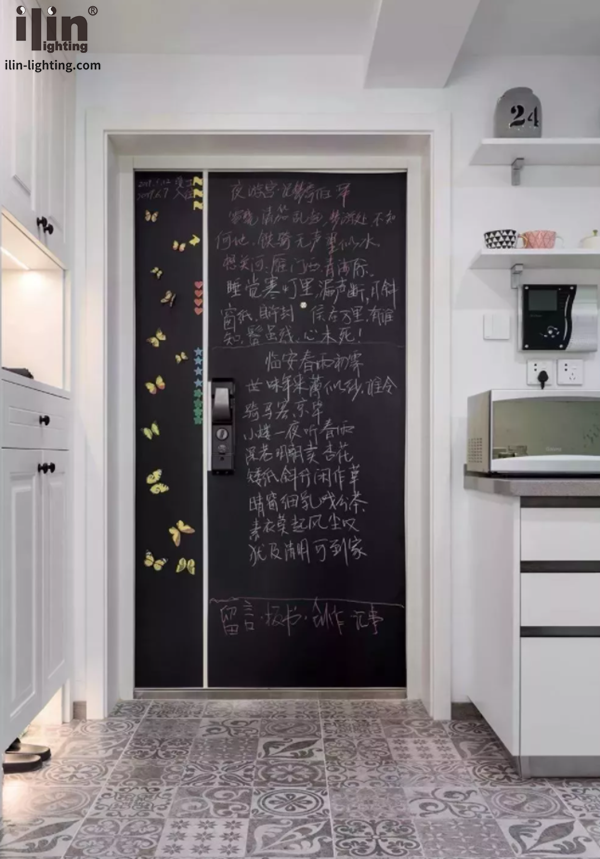 ilin®
lighting
ilin-lighting.com
24
夜游宫·记梦寄师
雪晓清笳乱起 梦游处 不知
何地 铁骑无声望似水
想关河 雁门西 青海际
睡觉寒灯里 漏声断 月斜
窗纸 自许封侯在万里 有谁
知 鬓虽残 心未死！
临安春雨初霁
世味年来薄似纱 谁令
骑马客京华
小楼一夜听春雨
深巷明朝卖杏花
矮纸斜行闲作草
晴窗细乳戏分茶
素衣莫起风尘叹
犹及清明可到家
留言·板书·创作·记事